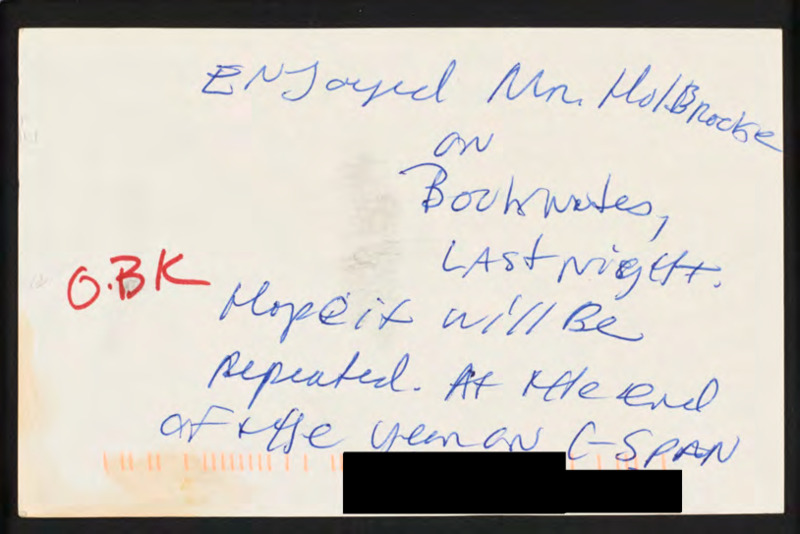 Enjoyed Mr. HolBrooke
on
Booknotes,
LAst Night.
O.BK
Hope it will Be
repeated. At the end
of the year on C-SPAN